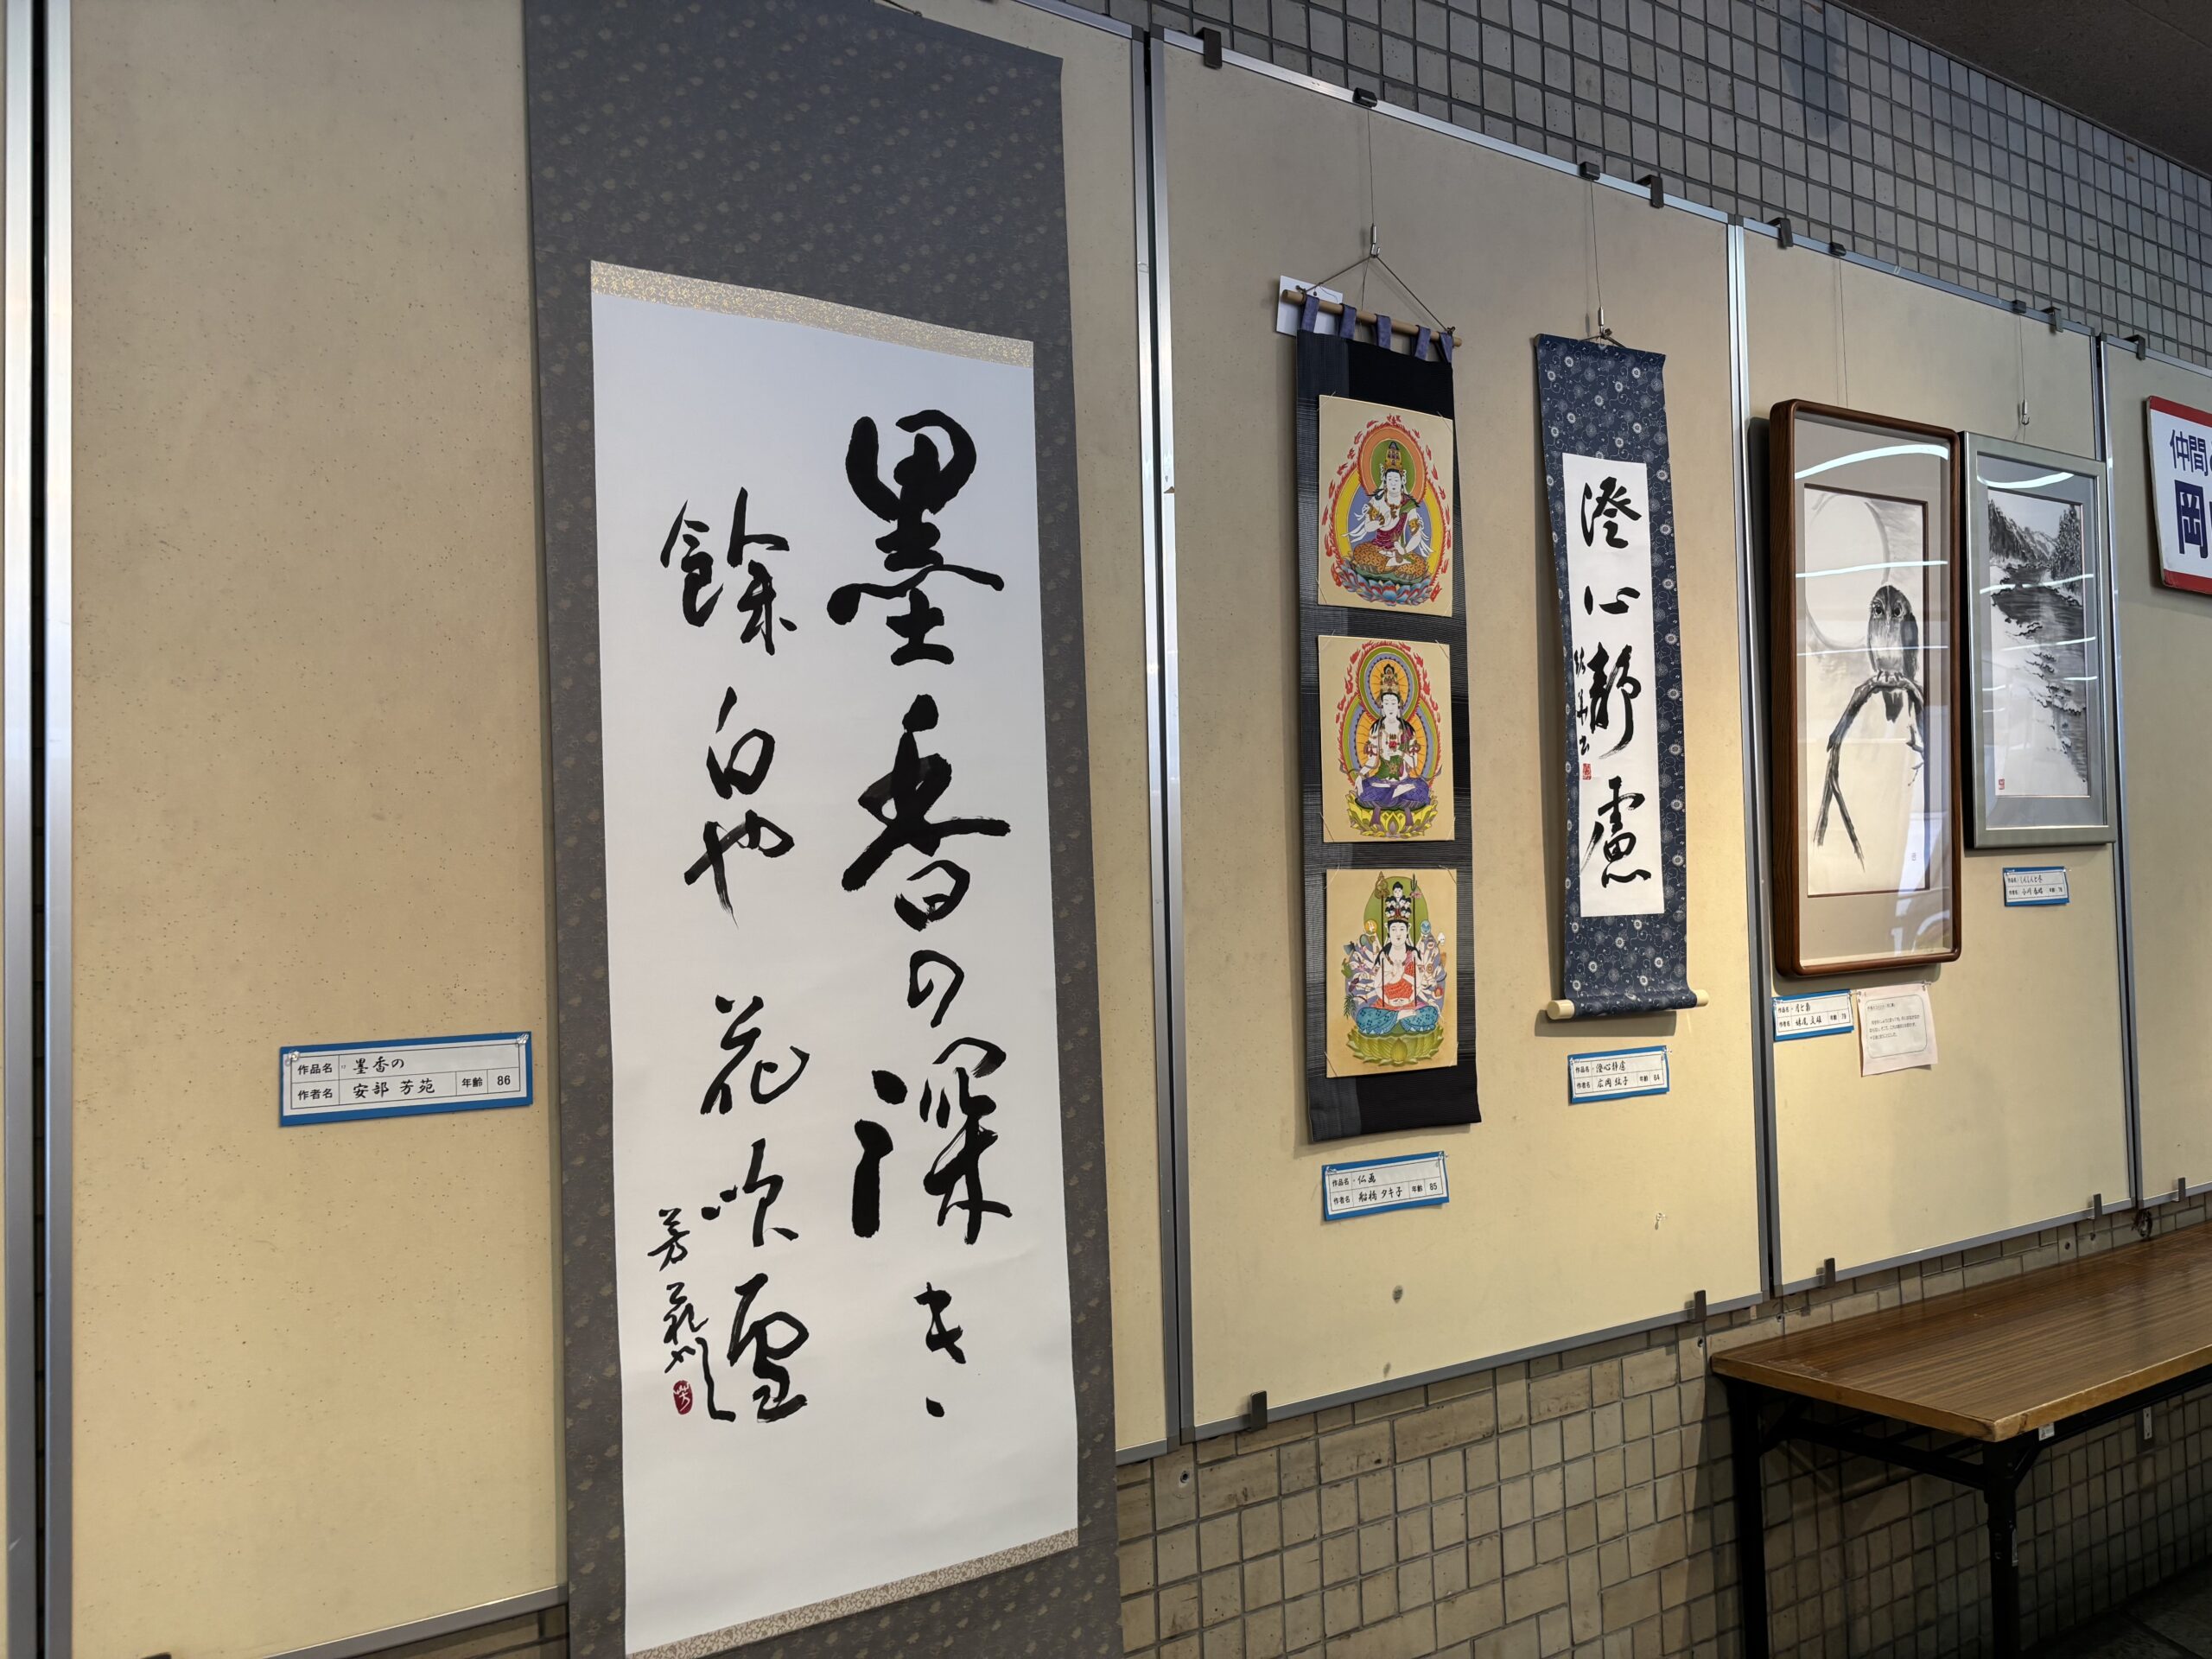 墨香の深き
餘白や花吹雪
芳苑
作品名 墨香の
作者名 安部 芳苑 年齢 86
作品名 仏画
作者名 船橋 タキ子 年齢 85
澄心静慮
作品名 澄心静慮
作者名 広岡 紘子 年齢 84
作品名
作者名 年齢 79
作品名
作者名 年齢 78
仲間
岡